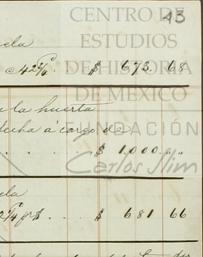 CENTRO DE
13
ESTUDIOS
DE HISTORIA
DE MÉXICO
FUNDACIÓN
Carlos Slim
ela
$ 675 68
la huerta
hecha á cargo de
$ 1,000
ela
$ 681 66